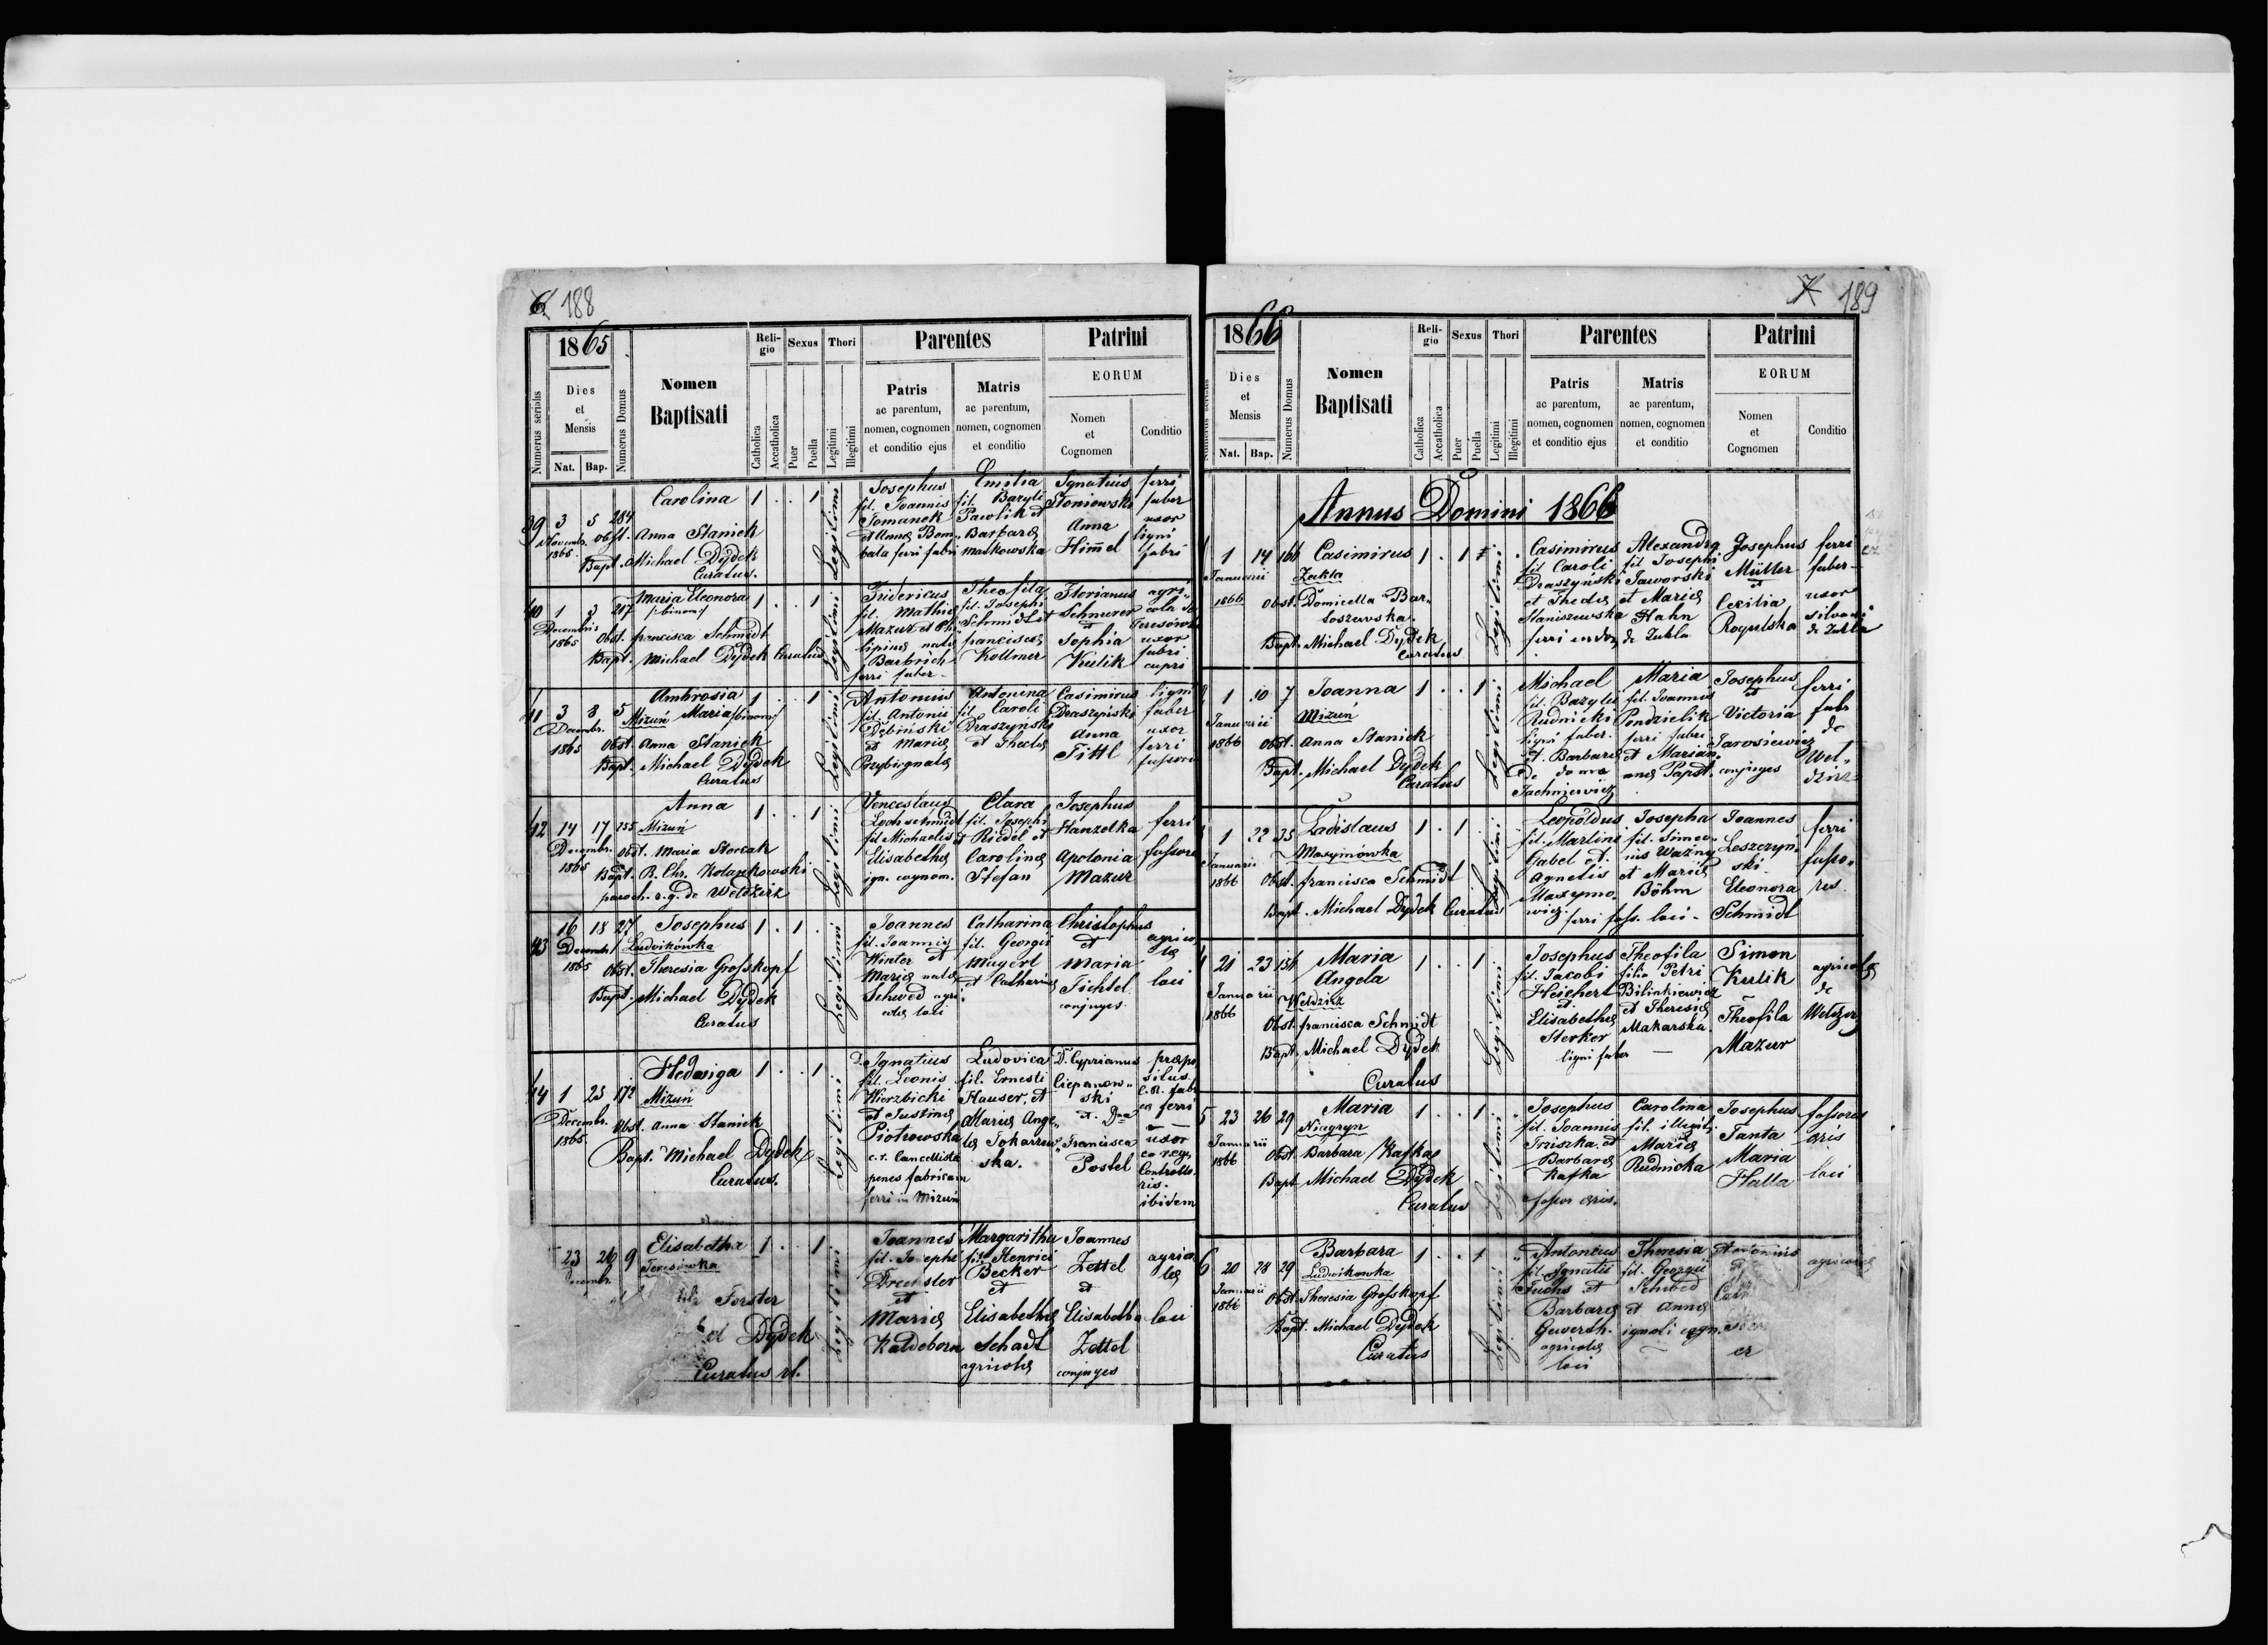 6 188
1865
Numerus serialis
Dies et Mensis
Nat. Bap.
Numerus Domus
Nomen Baptisati
Religio
Catholica
Accatholica
Sexus
Puer
Puella
Thori
Legitimi
Illegitimi
Parentes
Patris
ac parentum,
nomen, cognomen
et conditio ejus
Matris
ac parentum,
nomen, cognomen
et conditio
Patrini
EORUM
Nomen et Cognomen
Conditio
39 3 5 284 Carolina 1 . . 1 Legitimi
Novembr. 1865
Obst. Anna Staniek
Bapt. Michael Dydek
Curatus.
Josephus
fil. Joannis
Tomanek
et Anna Bem-
bala ferri fabri
Emilia
fil. Bazyli
Pawlik et
Barbara
Mankowska
Ignatius
Stoniowski
Anna
Himel
ferri
faber
uxor
ligni
fabri
40 1 3 217 Maria Eleonora 1 . . 1 Legitimi
/:binom:/
Decembris 1865
Obst. Francisca Schmidt
Bapt. Michael Dydek Curatus
Fridericus
fil. Mathiæ
Mazur et Phi-
lipina nata
Barbrich
ferri faber
Theofila
fil. Josephi
Schmidt et
Franciscæ
Kollmer
Florianus
Schmerer
et
Sophia
Kulik
agri-
cola de
Teresowka
uxor
fabri
cupri
41 3 8 5 Ambrosia 1 . . 1 Legitimi
Mizuń Maria /binom/
Decembr. 1865
Obst. Anna Staniek
Bapt. Michael Dydek
Curatus
Antonius
fil. Antonii
Dębinski
et Mariæ
Przybignata
Antonina
fil. Caroli
Draszyński
et Theclæ
Casimirus
Draszyński
Anna
Tittl
ligni
faber
uxor
ferri
fussoris
42 14 17 255 Anna 1 . . 1 Legitimi
Mizuń
Decembr. 1865
Obst. Maria Storcak
Bapt. R. Chr. Kolankowski
paroch. r. g. de Weldzirz
Venceslaus
Lochschmidt
fil. Michaelis et
Elisabethæ
ign. cognom.
Clara
fil. Josephi
Riedel et
Carolinæ
Stefan
Josephus
Hanzelka
Apolonia
Mazur
ferri
fussores
43 16 18 27 Josephus 1 . 1 . Legitimi
Ludvikówka
Decembr. 1865
Obst. Theresia Grosskopf
Bapt. Michael Dydek
Curatus
Joannes
fil. Joannis
Winter et
Mariæ natæ
Schwed agri-
colæ loci
Catharina
fil. Georgii
Magerl
et Catharinæ
Christophus
et
Maria
Fichtel
conjuges
agrico-
læ
loci
44 1 25 172 Hedwiga 1 . . 1 Legitimi
Mizuń
Decembr. 1865
Obst. Anna Staniek
Bapt. Michael Dydek
Curatus.
D. Ignatius
fil. Leonis
Wierzbicki
et Justinæ
Piotrowska
c. r. Cancellista
penes fabricam
ferri in Mizuń
Ludovica
fil. Ernesti
Hauser, et
Mariæ Ange-
læ Tokarzew-
ska.
D. Cyprianus
Ciepanow-
ski
et Dna
Francisca
Postel
præpo-
situs
C. R. fabri-
cæ ferri
uxor
cæ reg.
Controllo-
ris.
ibidem
23 26 9 Elisabetha 1 . . 1 Legitimi
Teresowka
Decembr.
Forster
Dydek
Curatus rl.
Joannes
fil. Josephi
Drechsler
et
Mariæ
Kaldeborn
Margaritha
fil. Henrici
Becker
et
Elisabethæ
Schadt
agricolæ
Joannes
Zettel
et
Elisabetha
Zettel
conjuges
agrico-
læ
loci
7 189
1866
Numerus serialis
Dies et Mensis
Nat. Bap.
Numerus Domus
Nomen Baptisati
Religio
Catholica
Accatholica
Sexus
Puer
Puella
Thori
Legitimi
Illegitimi
Parentes
Patris
ac parentum,
nomen, cognomen
et conditio ejus
Matris
ac parentum,
nomen, cognomen
et conditio
Patrini
EORUM
Nomen et Cognomen
Conditio
Annus Domini 1866
1 14 166 Casimirus 1 . 1 Legitimi
Zakla
Januarii 1866
Obst. Domicella Bar-
toszewska.
Bapt. Michael Dydek
Curatus
Casimirus
fil. Caroli
Draszyński
et Theclæ
Staniszewska
Alexandra
fil. Josephi
Jaworski
et Mariæ
Hahn
de Zakla
Josephus
Müller
et
Cecilia
Rogulska
ferri
faber
uxor
silvani
de Zakla
1 10 7 Joanna 1 . . 1 Legitimi
Mizuń
Januarii 1866
Obst. Anna Staniek
Bapt. Michael Dydek
Curatus
Michael
fil. Bazylii
Rudnicki
ligni faber.
et Barbaræ
de domo
Jachniewicz
Maria
fil. Joannis
Pendzielik
ferri fabri
et Marian-
næ Papst.
Josephus
et
Victoria
Jarosiewicz
conjuges
ferri
fabr
de
Wel-
dzirz
1 22 35 Ladislaus 1 . 1 . Legitimi
Maxymówka
Januarii 1866
Obst. Francisca Schmidt
Bapt. Michael Dydek Curatus
Leopoldus
fil. Martini
Gabel et
Agnetis
Maxymo-
wicz
ferri foss. loci
Josepha
fil. Simeo-
nis Ważny
et Mariæ
Böhm
Joannes
Leszczyń-
ski
Eleonora
Schmidt
ferri
fusso-
res
21 23 154 Maria 1 . . 1 Legitimi
Angela
Weldzirz
Januarii 1866
Obst. Francisca Schmidt
Bapt. Michael Dydek
Curatus
Josephus
fil. Jacobi
Heichert
et
Elisabethæ
Sterker
ligni faber
Theofila
filia Petri
Bilinkiewicz
et Theresiæ
Makarska.
Simon
Kulik
Theofila
Mazur
agricolæ
de
Weldzirz
5 23 26 29 Maria 1 . . 1 Legitimi
Niagryn
Januarii 1866
Obst. Barbara Kafka
Bapt. Michael Dydek
Curatus
Josephus
fil. Joannis
Truszka et
Barbaræ
Kafka
fossor æris.
Carolina
fil. illegit.
Mariæ
Rudnicka
Josephus
Tanta
Maria
Halla
fossores
æris
loci
6 20 28 29 Barbara 1 . . 1 Legitimi
Ludvikowka
Januarii 1866
Obst. Theresia Grosskopf
Bapt. Michael Dydek
Curatus
Antonius
fil. Ignatii
Fuchs et
Barbaræ
Gewerth.
agricolæ
loci
Theresia
fil. Georgii
Schwed
et Annæ
ignoti cogn.
Antonius
agricolæ